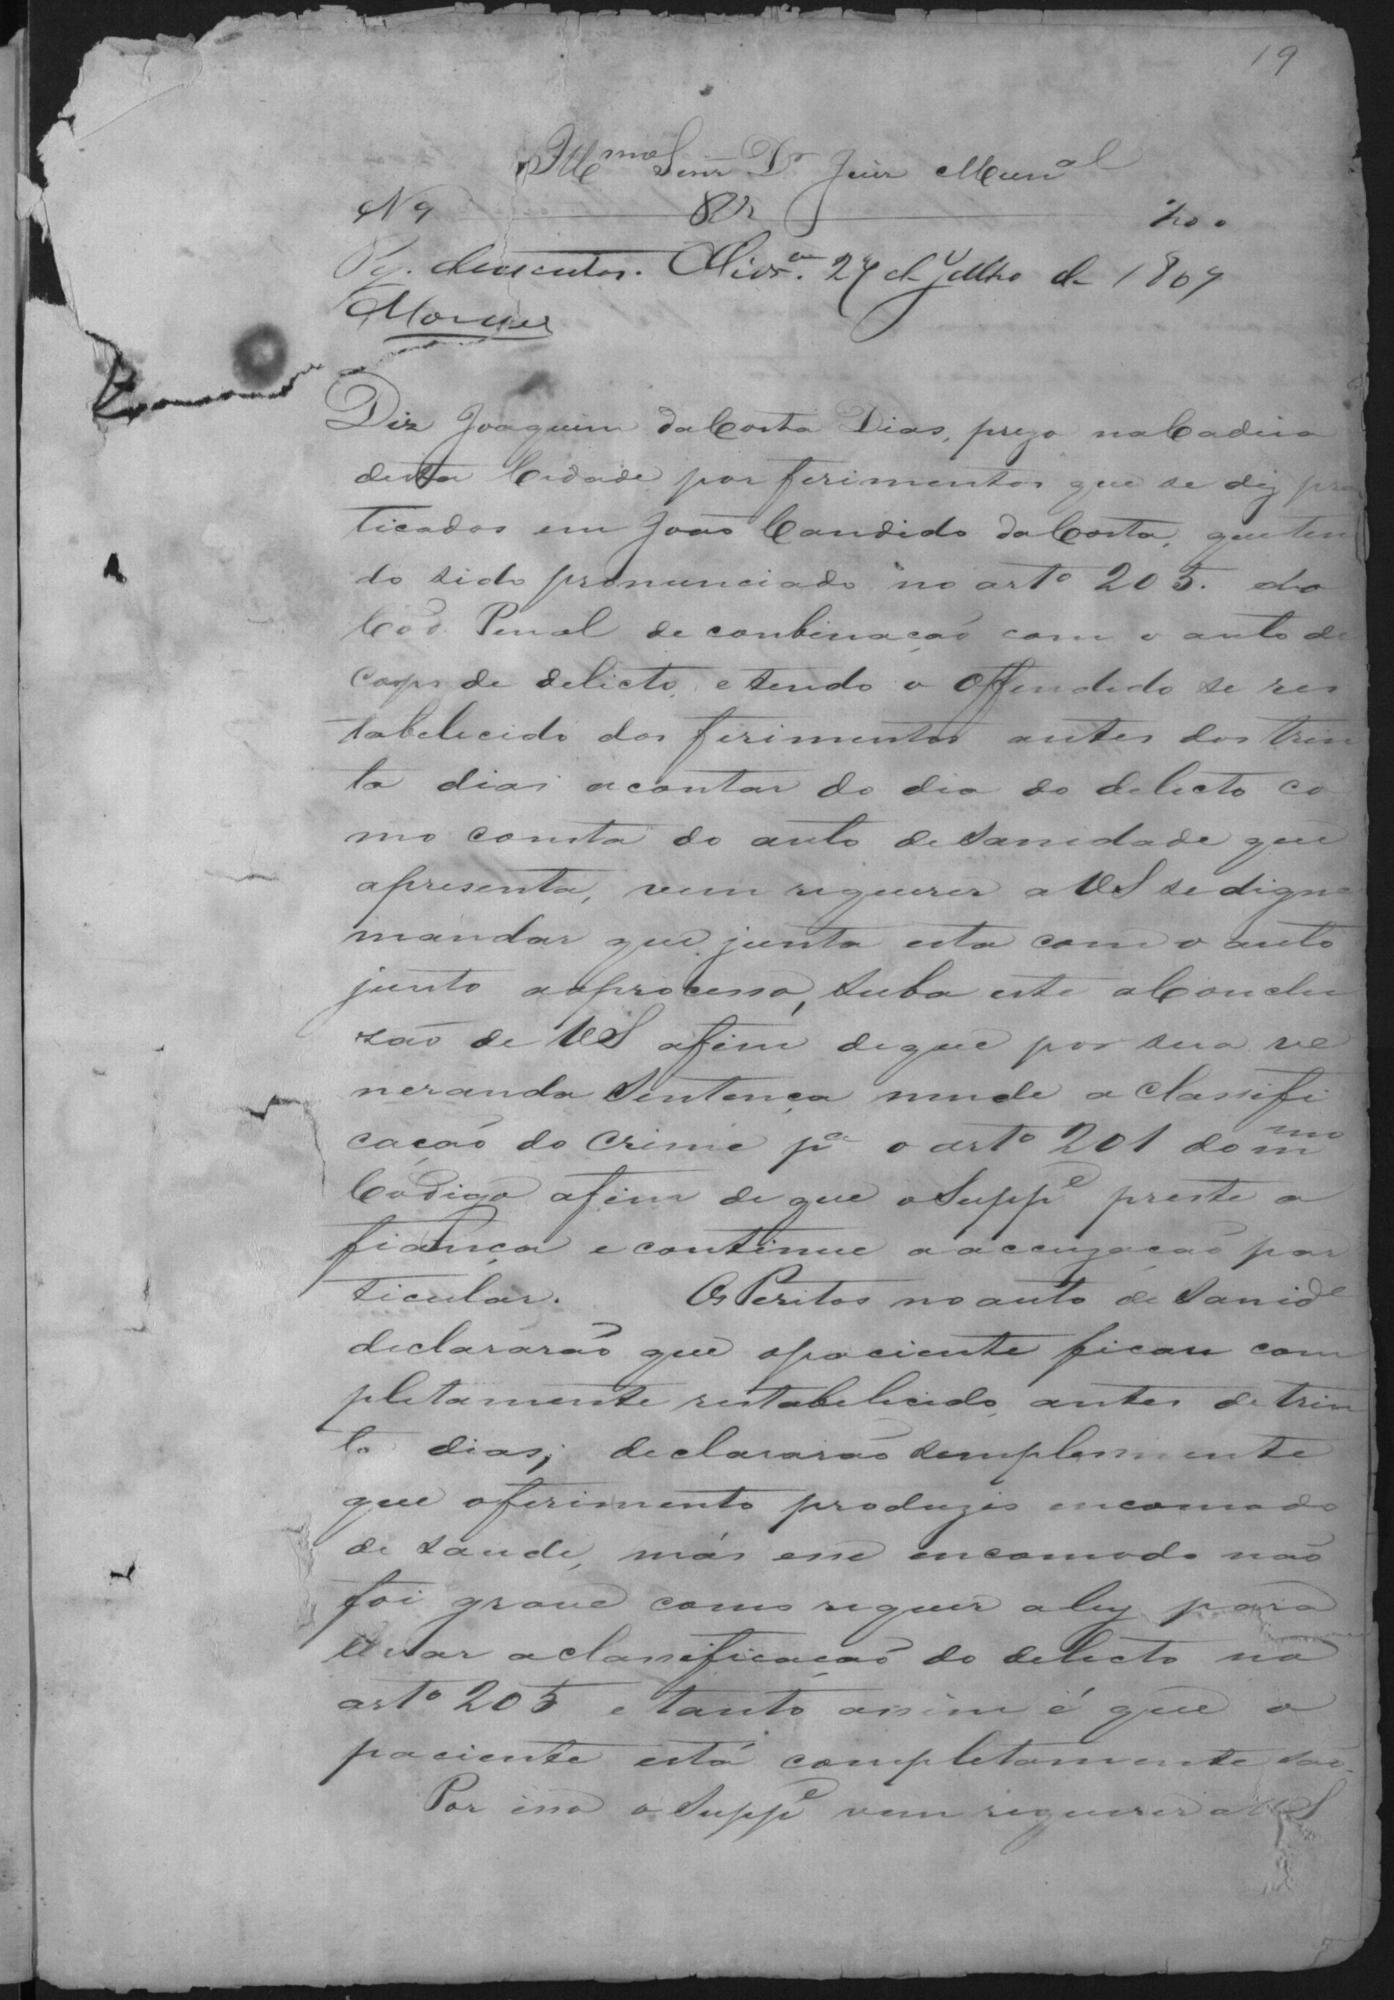 19
Illmo Senr Dr Juiz Munal
N 9 200
Olivra. 27 de Julho de 1869
Diz Joaquim da Costa Dias, prezo na Cadeia
desta Cidade por ferimentos que se diz pra
ticados em João Candido da Costa, que ten
do sido pronunciado no arto 205. do
Cod. Penal de combinação com o auto de
corpo de delicto, e tendo o offendido se res
tabelecido dos ferimentos antes dos trin
ta dias a contar do dia do delicto co
mo consta do auto de Sanidade que
apresenta, vem requerer a VS se digne
mandar que junta esta com o auto
junto ao processo, suba este a Conclu
zão de VS afim de que por sua ve
neranda Sentença mude a classifi
cação do crime pa o arto 201 do mmo
Codigo afim de que o Suppe preste a
fiança e continue a accuzação par
ticular. Os Peritos no auto de Sanide
declararão que o paciente ficou com
pletamente restabelecido antes de trin
ta dias; declararão simplesmente
que o ferimento produzio encomodo
de saude, más esse encomodo não
foi grave como requer a ley para
elevar a classificação do delicto no
arto 205 e tanto assim é que o
paciente está completamente são.
Por isso o Suppe vem requerer a VS